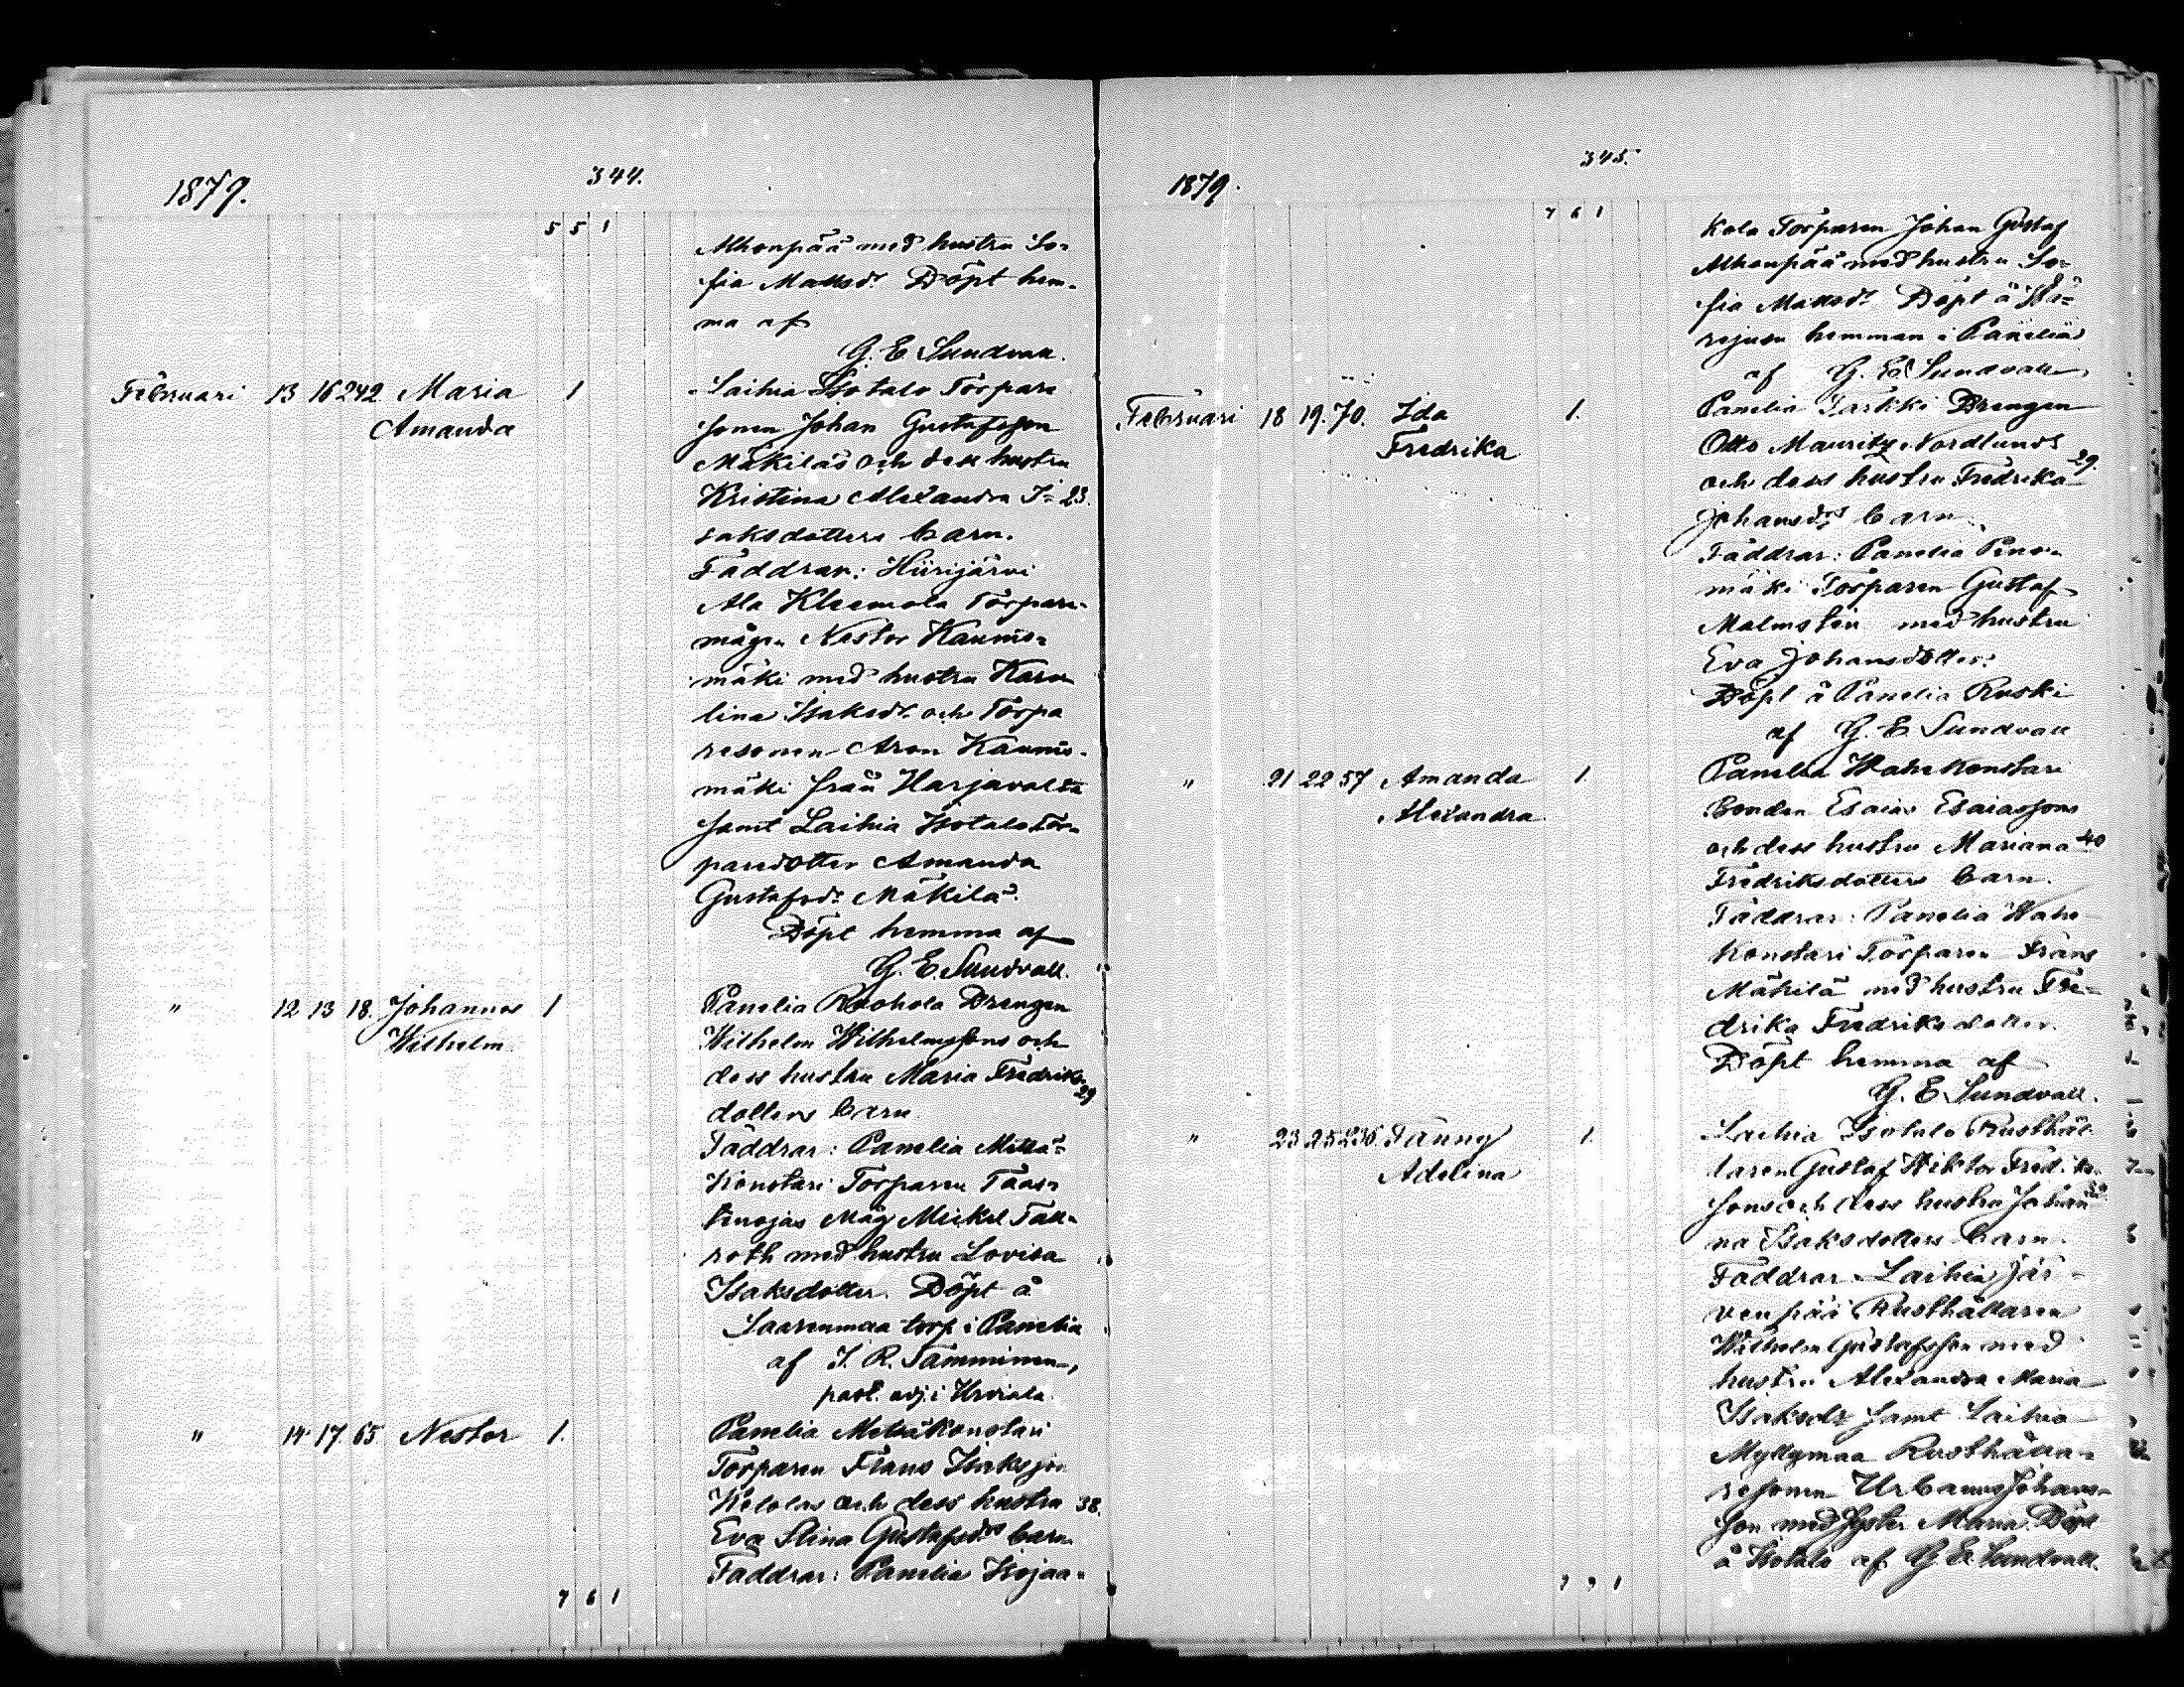 1879.
344.
5 5 1
Alhonpää med hustru So-
fia Mattsdr. Döpt hem-
ma af
G. E. Sundvall.
Februari 13 16 242 Maria 1 Laihia Isotalo Torpare
Amanda sonen Johan Gustafsson
Mäkiläs och dess hustru
Kristina Alexandra I- 23.
saksdotters barn.
Faddrar: Hiirijärvi
Ala Kleemola Torpare-
mågen Nestor Kaunis-
mäki med hustru Karo
lina Isaksdr. och Torpa
resonen Aron Kaunis-
mäki från Harjavalta
samt Laihia Isotalo Tor-
paredotter Amanda
Gustafsdr. Mäkilä.
Döpt hemma af
G. E. Sundvall.
" 12 13 18. Johannes 1 Panelia Ruohola Drengen
Wilhelm. Wilhelm Wilhelmssons och
dess hustru Maria Fredriks- 29
dotters barn
Faddrar: Panelia Mettä-
Konstari Torparen
Måg Mickel Tall-
roth med hustru Lovisa
Isaksdotter. Döpt å
Saarenmaa torp i Panelia
af J. R. Tamminen,
past. adj. i Urdiala.
" 14 17. 65. Nestor 1. Panelia Mettäkonstari
Torparen Frans Isaksson
Ketolas och dess hustru 38.
Eva Stina Gustafsdrs barn
Faddrar: Panelia Isojaa-
7 6 1
1879.
345.
7 6 1
kola Torparen Johan Gustaf
Alhonpää med hustru So-
fia Mattsdr. Döpt å
hemman i Panelia
af G. E. Sundvall.
Februari 18 19. 70. Ida 1. Panelia Tarkki Drengen
Fredrika Otto Mauritz Nordlunds
och dess hustru Fredrika 29.
Johansdrs barn
Faddrar: Panelia
mäki Torparen Gustaf
Malmsten med hustru
Eva Johansdotter.
Döpt å Panelia Ruski
af G. E. Sundvall
" 21 22 57 Amanda 1. Panelia Wähäkonstari
Alexandra Bonden Esaias Esaiassons
och dess hustru Mariana 40
Fredriksdotters barn.
Faddrar: Panelia Wähä
Konstari Torparen Frans
Mäkilä med hustru Fre-
drika Fredriksdotter.
Döpt hemma af
G. E. Sundvall.
" 23 25 236. Fanny 1. Laihia Isotalo Rusthål-
Adelina laren Gustaf Wiktor Fredriks-
sons och dess hustru Johan
na Isaksdotters barn.
Faddrar. Laihia Jär-
venpää Rusthållaren
Wilhelm Gustafsson med
hustru Alexandra Maria
Isaksdr samt Laihia
Myllymaa Rusthålla-
resonen Urbanus Johans-
son med syster Maria. Döpt
å Isotalo af G. E. Sundvall.